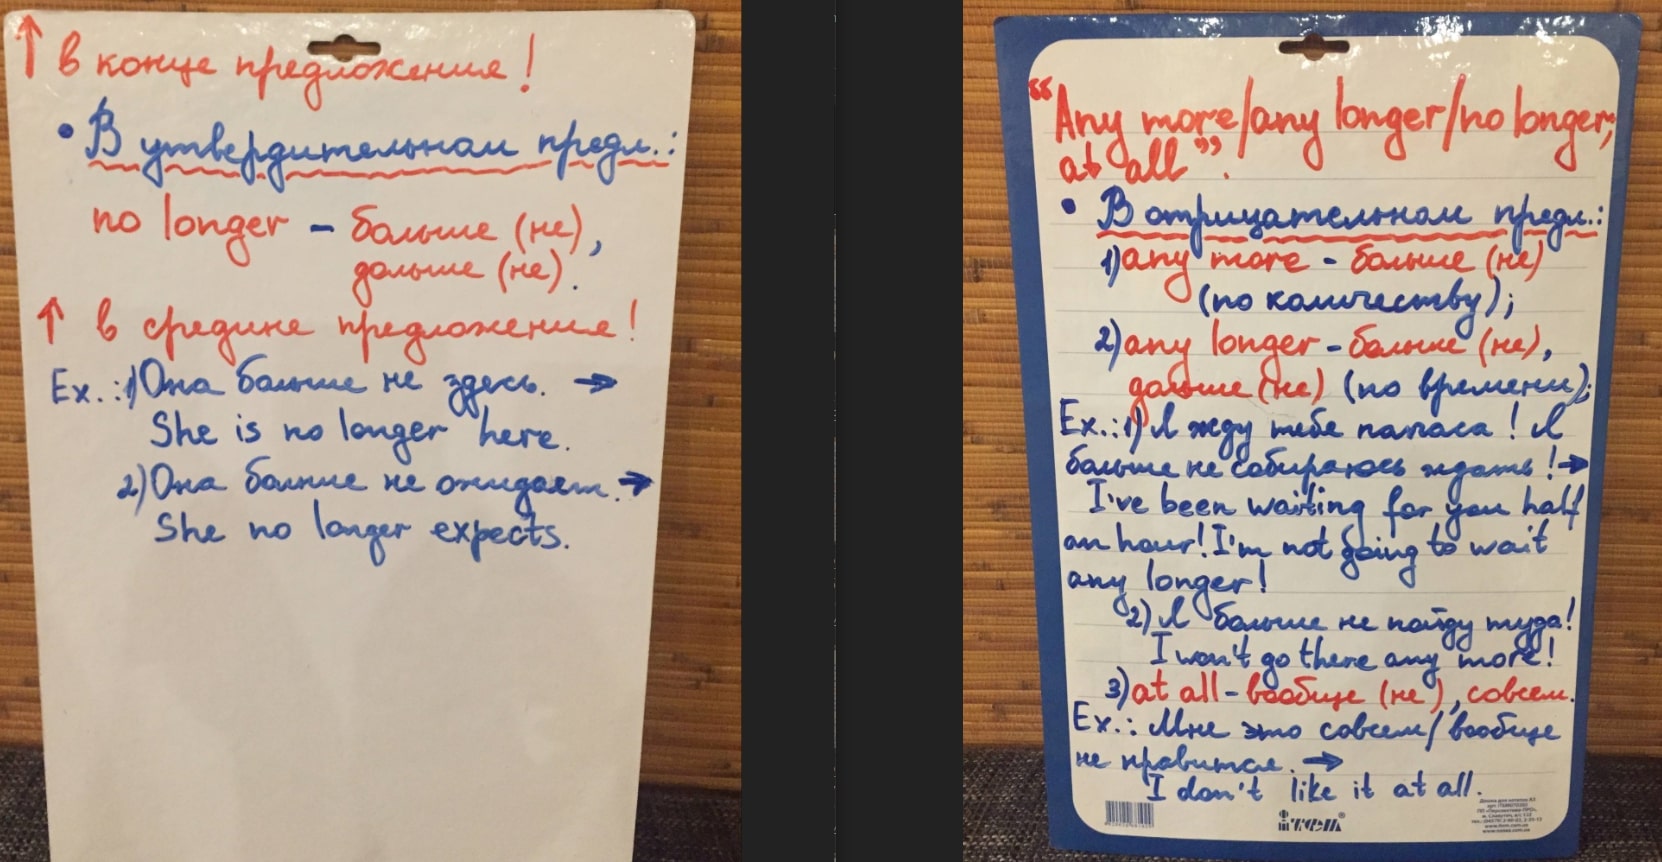 ↑ в конце предложения!
• В утвердительном предл.:
no longer – больше (не),
дальше (не).
↑ в средине предложения!
Ex.: 1) Она больше не здесь. →
She is no longer here.
2) Она больше не ожидает. →
She no longer expects.
"Any more/any longer/no longer,
at all".
• В отрицательном предл.:
1) any more - больше (не)
(по количеству);
2) any longer - больше (не),
дальше (не) (по времени);
Ex.: 1) Я жду тебе полчаса! Я
больше не собираюсь ждать! →
I've been waiting for you half
an hour! I'm not going to wait
any longer!
2) Я больше не пойду туда!
I won't go there any more!
3) at all - вообще (не), совсем.
Ex.: Мне это совсем/вообще
не нравится. →
I don't like it at all.